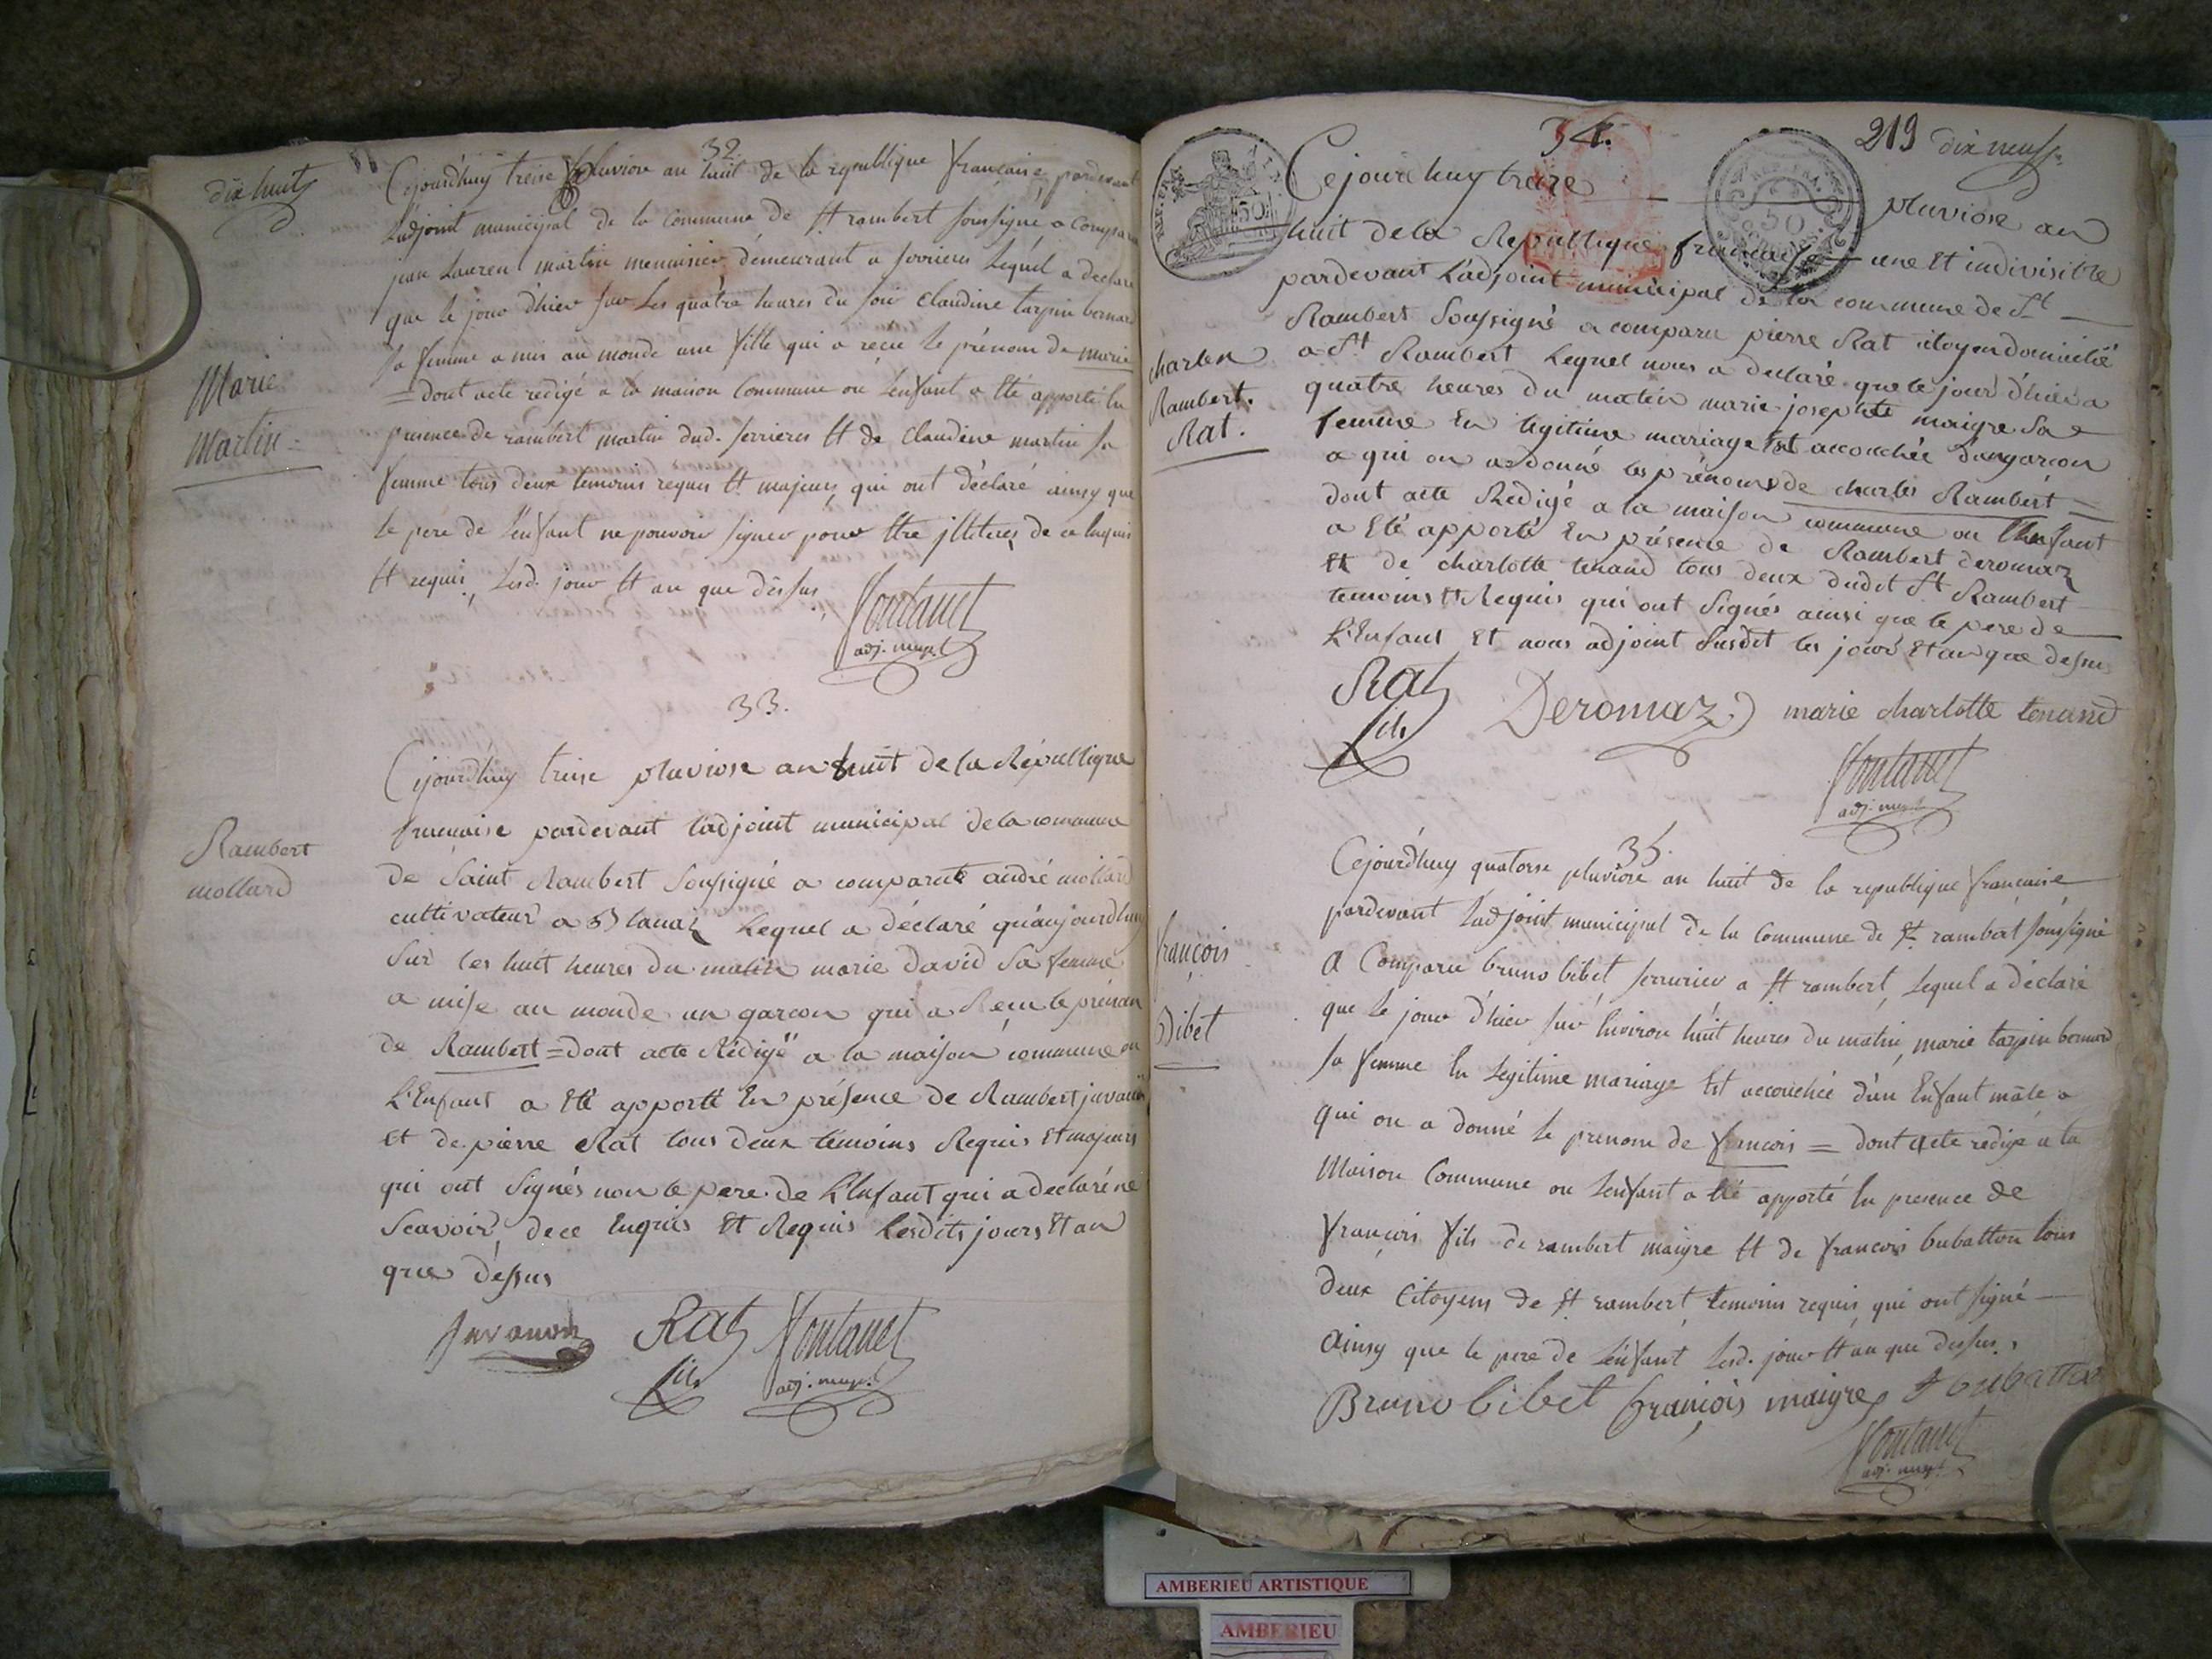 dix huit
32
Cejourdhuy treise pluviose an huit de la republique francaise, pardevant
Ladjoint municipal de la commune de St rambert soussigné a comparu
jean Lauren martin menuisier demeurant a serrieres Lequel a declare
que le jour d'hier sur Les quatre heures du soir Claudine tarpin bernard
sa femme a mis au monde une fille qui a reçu le prénom de marie
= dont acte redigé a la maison Commune ou Lenfant a Eté apporté En
presence de rambert martin dud. serrieres Et de Claudine martin sa
femme tous deux temoins requis Et majeurs, qui ont déclaré ainsy que
le pere de Lenfant ne pouvoir signer pour Etre jlliterés de ce Enquis
Et requis, Lesd. jour Et an que dessus
Marie
Martin =
fontanet
adj. mupl.
33.
Cejourdhuy treise pluviose an huit de la République
francaise pardevant L'adjoint municipal de la commune
de Saint Rambert Soussigné a comparut andré mollard
cultivateur a Blanaz Lequel a déclaré qu'aujourdhuy
Sur les huit heures du matin marie david Sa femme
a mise au monde un garcon qui a Reçu le prénom
de Rambert = dont acte Rédigé a la maison commune ou
L'Enfant a Eté apporté En présence de Rambert juvanon
et de pierre Rat tous deux témoins Requis Et majeurs
qui ont Signés non le pere de L'Enfant qui a declaré ne
Scavoir, de ce Enquis Et Requis Lesdits jours Et an
que dessus
Rambert
mollard
Juvanon Rat fontanet
fils adj. mupl.
34.
219 dix neuf
REP. FRA.
50
50
Cejourdhuy treize pluviose an
huit de la République francaise une Et indivisible
pardevant L'adjoint municipal de la commune de St
Rambert Soussigné a comparu pierre Rat citoyen domicilié
a St Rambert Lequel nous a declaré que le jour d'hier a
quatre heures du matin marie josephte maigre Sa
femme En légitime mariage Est accouchée d'un garcon
a qui on a donné les prénoms de charles Rambert =
dont acte Rédigé a la maison commune ou L'Enfant
a Eté apporté En présence de Rambert deromaz
Et de charlotte tenand tous deux dudit St Rambert
temoins Requis qui ont Signés ainsi que le pere de
L'Enfant Et nous adjoint Susdit les jour Et an que dessus
charles
Rambert.
Rat.
Rat Deromaz marie charlotte tenand
fils
fontanet
adj. mupl.
35.
Cejourdhuy quatorse pluviose an huit de la republique francaise
pardevant Ladjoint municipal de la Commune de St rambert soussigné
a Comparu bruno bibet serrurier a St rambert, Lequel a déclaré
que le jour d'hier sur Environ huit heures du matin, marie tarpin bernard
sa femme En Legitime mariage Est accouchée d'un Enfant mâle a
qui on a donné le prenom de francois = dont acte redigé a la
Maison Commune ou Lenfant a Eté apporté En presence de
francois fils de rambert maigre Et de francois bubatton tous
deux Citoyens de St rambert, temoins requis, qui ont signé
ainsy que le pere de Lenfant Lesd. jour Et an que dessus.
françois
Bibet
Bruno bibet françois maigre f bubatton
fontanet
adj. mupl.
AMBERIEU ARTISTIQUE
AMBERIEU